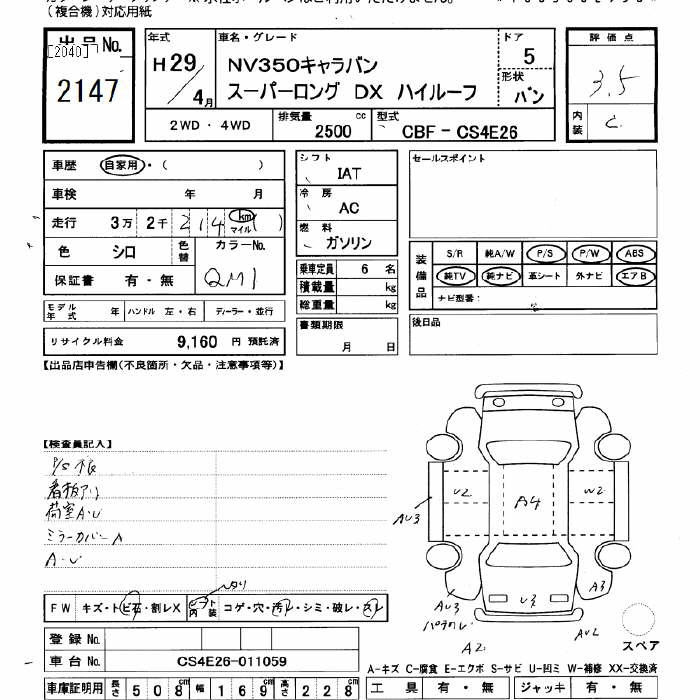 (複合機)対応用紙
出品No.
[2040]
2147
年式
H29/4月
車名・グレード
NV350キャラバン
スーパーロング DX ハイルーフ
ドア
5
形状
バン
2WD・4WD
排気量
2500 cc
型式
CBF-CS4E26
評価点
3.5
内装
C
車歴 自家用・( )
車検 年 月
走行 3万 2千 214 km マイル ( )
色 シロ 色替 カラーNo.
QM1
保証書 有・無
モデル年式 年 ハンドル 左・右 ディーラー・並行
リサイクル料金 9,160 円 預託済
シフト
IAT
冷房
AC
燃料
ガソリン
乗車定員 6 名
積載量 kg
総重量 kg
書類期限
月 日
セールスポイント
装備品
S/R 純A/W P/S P/W ABS
純TV 純ナビ 革シート 外ナビ エアB
ナビ型番:
後日品
【出品店申告欄(不良箇所・欠品・注意事項等)】
【検査員記入】
P/S不良
看板アリ
荷室A・U
ミラーカバーA
A・U
U2
A4
W2
AU3
AU3
U3
A3
A2
AU2
スペア
FW キズ・トビ石・割レX
シート内装 コゲ・穴・汚レ・シミ・破レ・スレ
登録No.
車台No. CS4E26-011059
車庫証明用 長さ 508cm 幅 169cm 高さ 228cm
A-キズ C-腐食 E-エクボ S-サビ U-凹ミ W-補修 XX-交換済
工具 有・無 ジャッキ 有・無